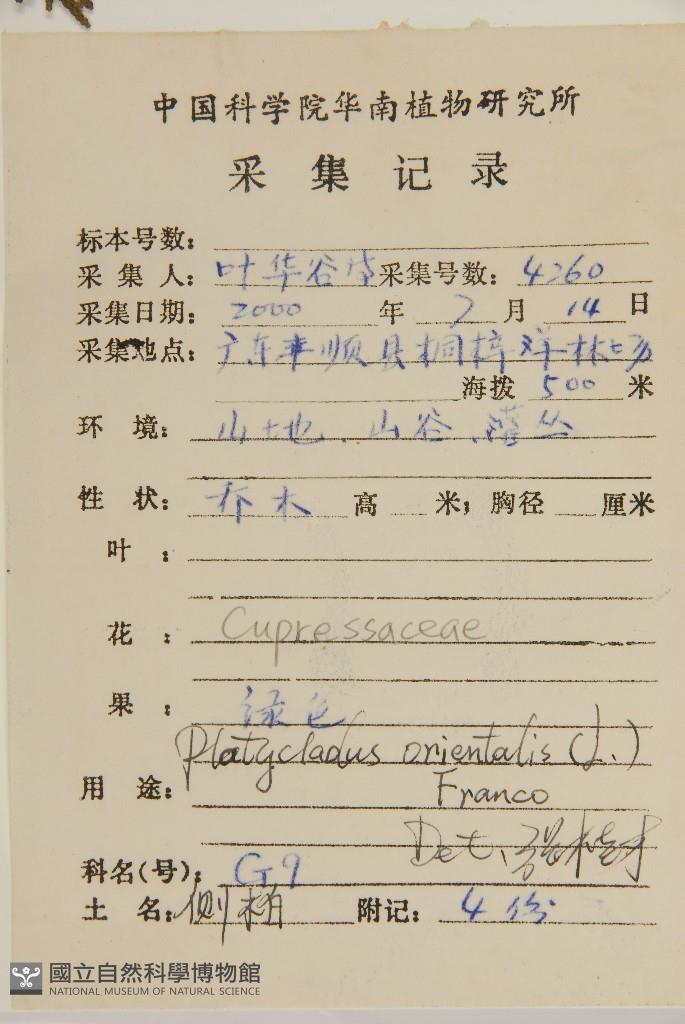 中国科学院华南植物研究所
采集记录
标本号数:
采集人: 叶华谷等 采集号数: 4260
采集日期: 2000 年 7 月 14 日
采集地点: 广东丰顺县桐梓洋林场
海拨 500 米
环境: 山地、山谷、灌丛
性状: 乔木 高 米; 胸径 厘米
叶:
花: Cupressaceae
果: 绿色
Platycladus orientalis (L.)
用途: Franco
Det.
科名(号): G9
土名: 侧柏 附记: 4份
國立自然科學博物館
NATIONAL MUSEUM OF NATURAL SCIENCE